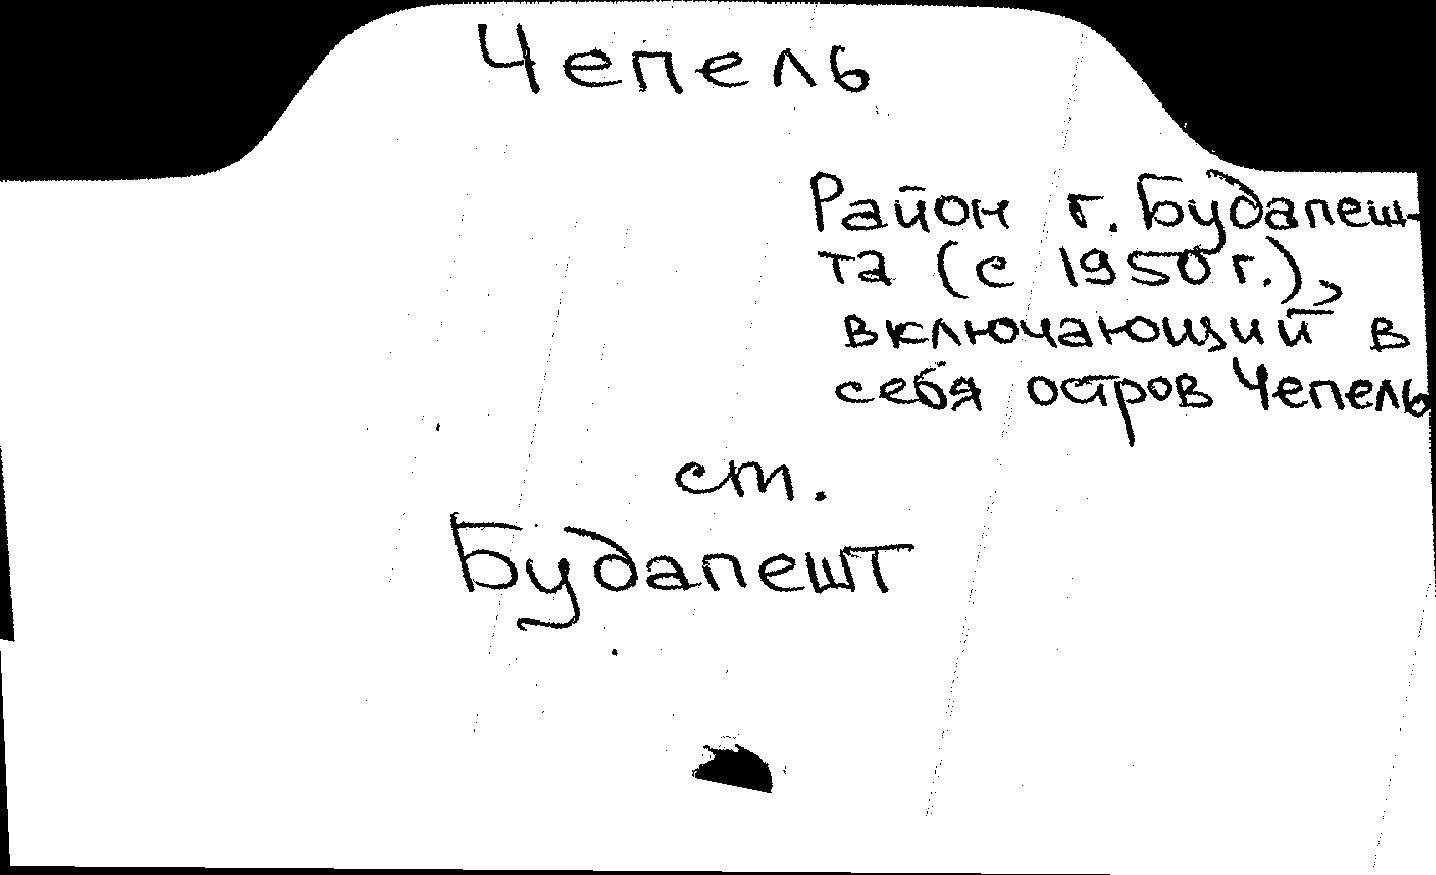 Чепель
Район г. Будапеш-
та (с 1950 г.),
включающий в
себя остров Чепель
ст.
Будапешт